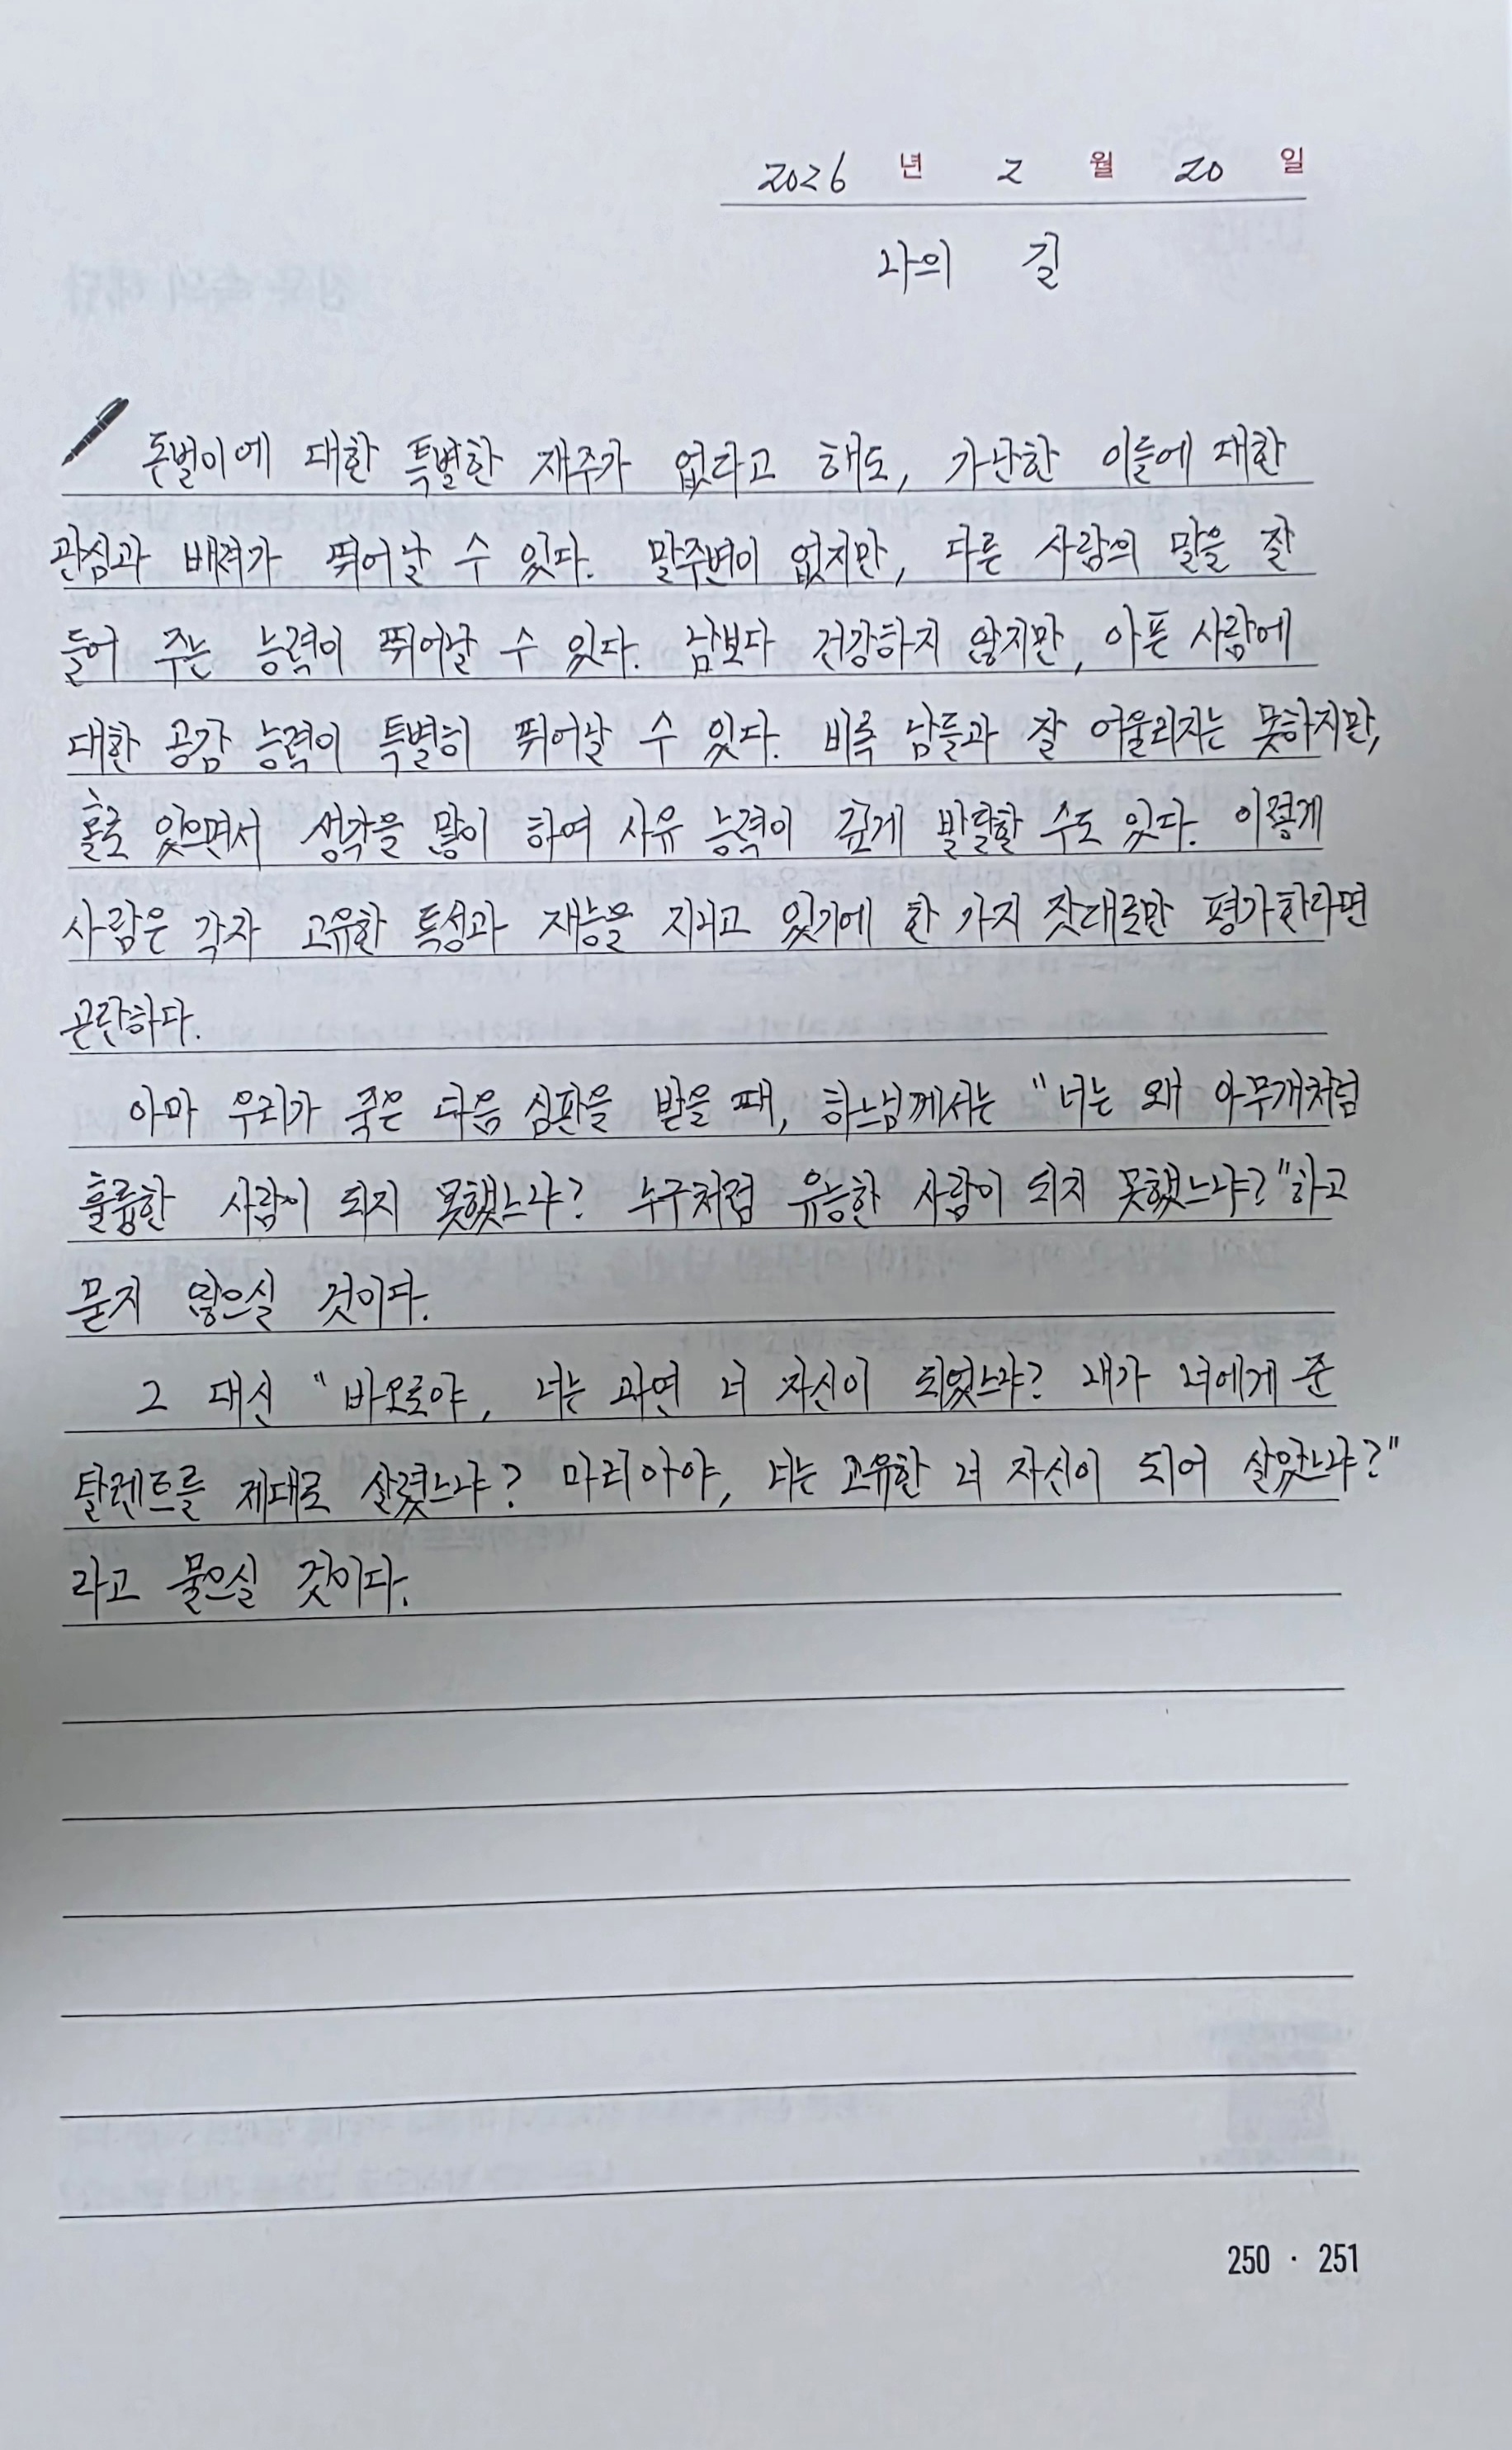 2026 년 2 월 20 일
나의 길
돈벌이에 대한 특별한 재주가 없다고 해도, 가난한 이들에 대한
관심과 배려가 뛰어날 수 있다. 말주변이 없지만, 다른 사람의 말을 잘
들어 주는 능력이 뛰어날 수 있다. 남보다 건강하지 않지만, 아픈 사람에
대한 공감 능력이 특별히 뛰어날 수 있다. 비록 남들과 잘 어울리지는 못하지만,
홀로 있으면서 생각을 많이 하여 사유 능력이 깊게 발달할 수도 있다. 이렇게
사람은 각자 고유한 특성과 재능을 지니고 있기에 한 가지 잣대로만 평가한다면
곤란하다.
아마 우리가 죽은 다음 심판을 받을 때, 하느님께서는 "너는 왜 아무개처럼
훌륭한 사람이 되지 못했느냐? 누구처럼 유능한 사람이 되지 못했느냐?"하고
묻지 않으실 것이다.
그 대신 "바오로야, 너는 과연 너 자신이 되었느냐? 내가 너에게 준
탈렌트를 제대로 살렸느냐? 마리아야, 너는 고유한 너 자신이 되어 살았느냐?"
라고 물으실 것이다.
250 · 251